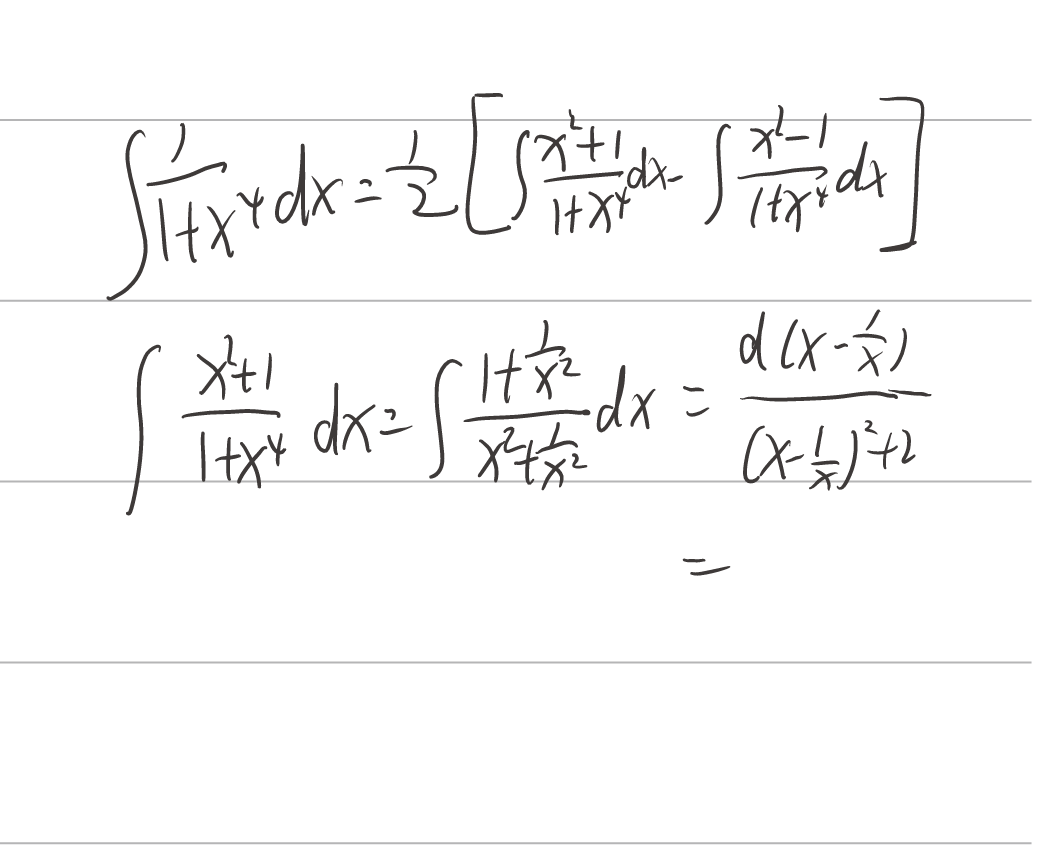 ∫ 1/(1+x⁴) dx = 1/2 [ ∫ (x²+1)/(1+x⁴) dx - ∫ (x²-1)/(1+x⁴) dx ]
∫ (x²+1)/(1+x⁴) dx = ∫ (1+1/x²)/(x²+1/x²) dx = d(x-1/x)/((x-1/x)²+2)
=